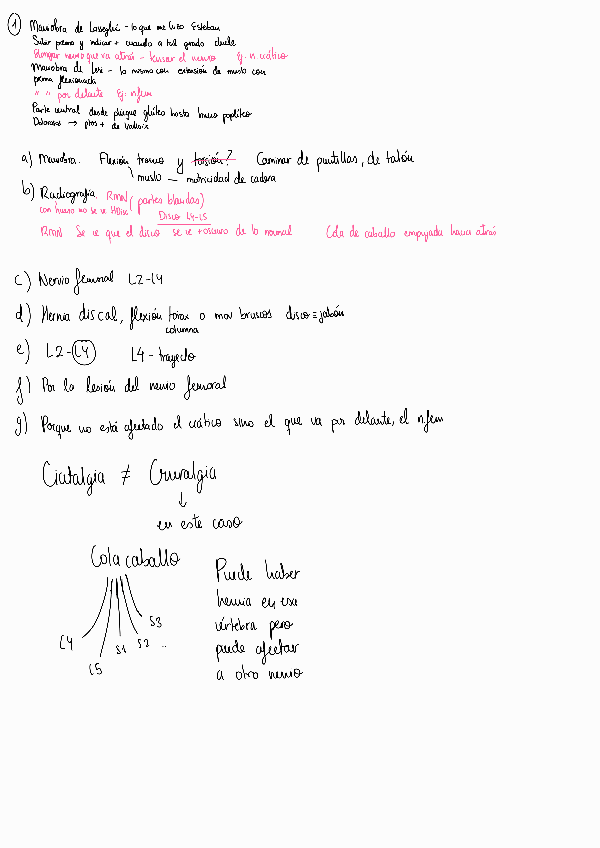 1 Maniobra de Lasegué - lo que me hizo Esteban
Subir pierna y indicar + cuando a tal grado duele
Elongar nervio que va atrás - tensar el nervio Ej: n ciático
Maniobra de Leri - lo mismo con extensión de muslo con
pierna flexionada
" " por delante Ej: nfem
Parte central desde pliegue glúteo hasta hueco poplíteo
Dolorosos → ptos + de Valleix
a) Maniobra. Flexión tronco y torsión? Caminar de puntillas, de talón
muslo - motricidad de cadera
b) Radiografía. RMN (partes blandas)
con hueso no se ve
Disco L4-L5
RMN Se ve que el disco se ve + oscuro de lo normal Cola de caballo empujada hacia atrás
c) Nervio femoral L2-L4
d) Hernia discal, flexión tórax o mov bruscos disco = jabón
columna
e) L2-L4 L4 - trayecto
f) Por la lesión del nervio femoral
g) Porque no está afectado el ciático sino el que va por delante, el n.fem
Ciatalgia ≠ Cruralgia
↓
en este caso
Cola caballo
L4 L5 S1 S2 S3 ..
Puede haber
hernia en esa
vértebra pero
puede afectar
a otro nervio